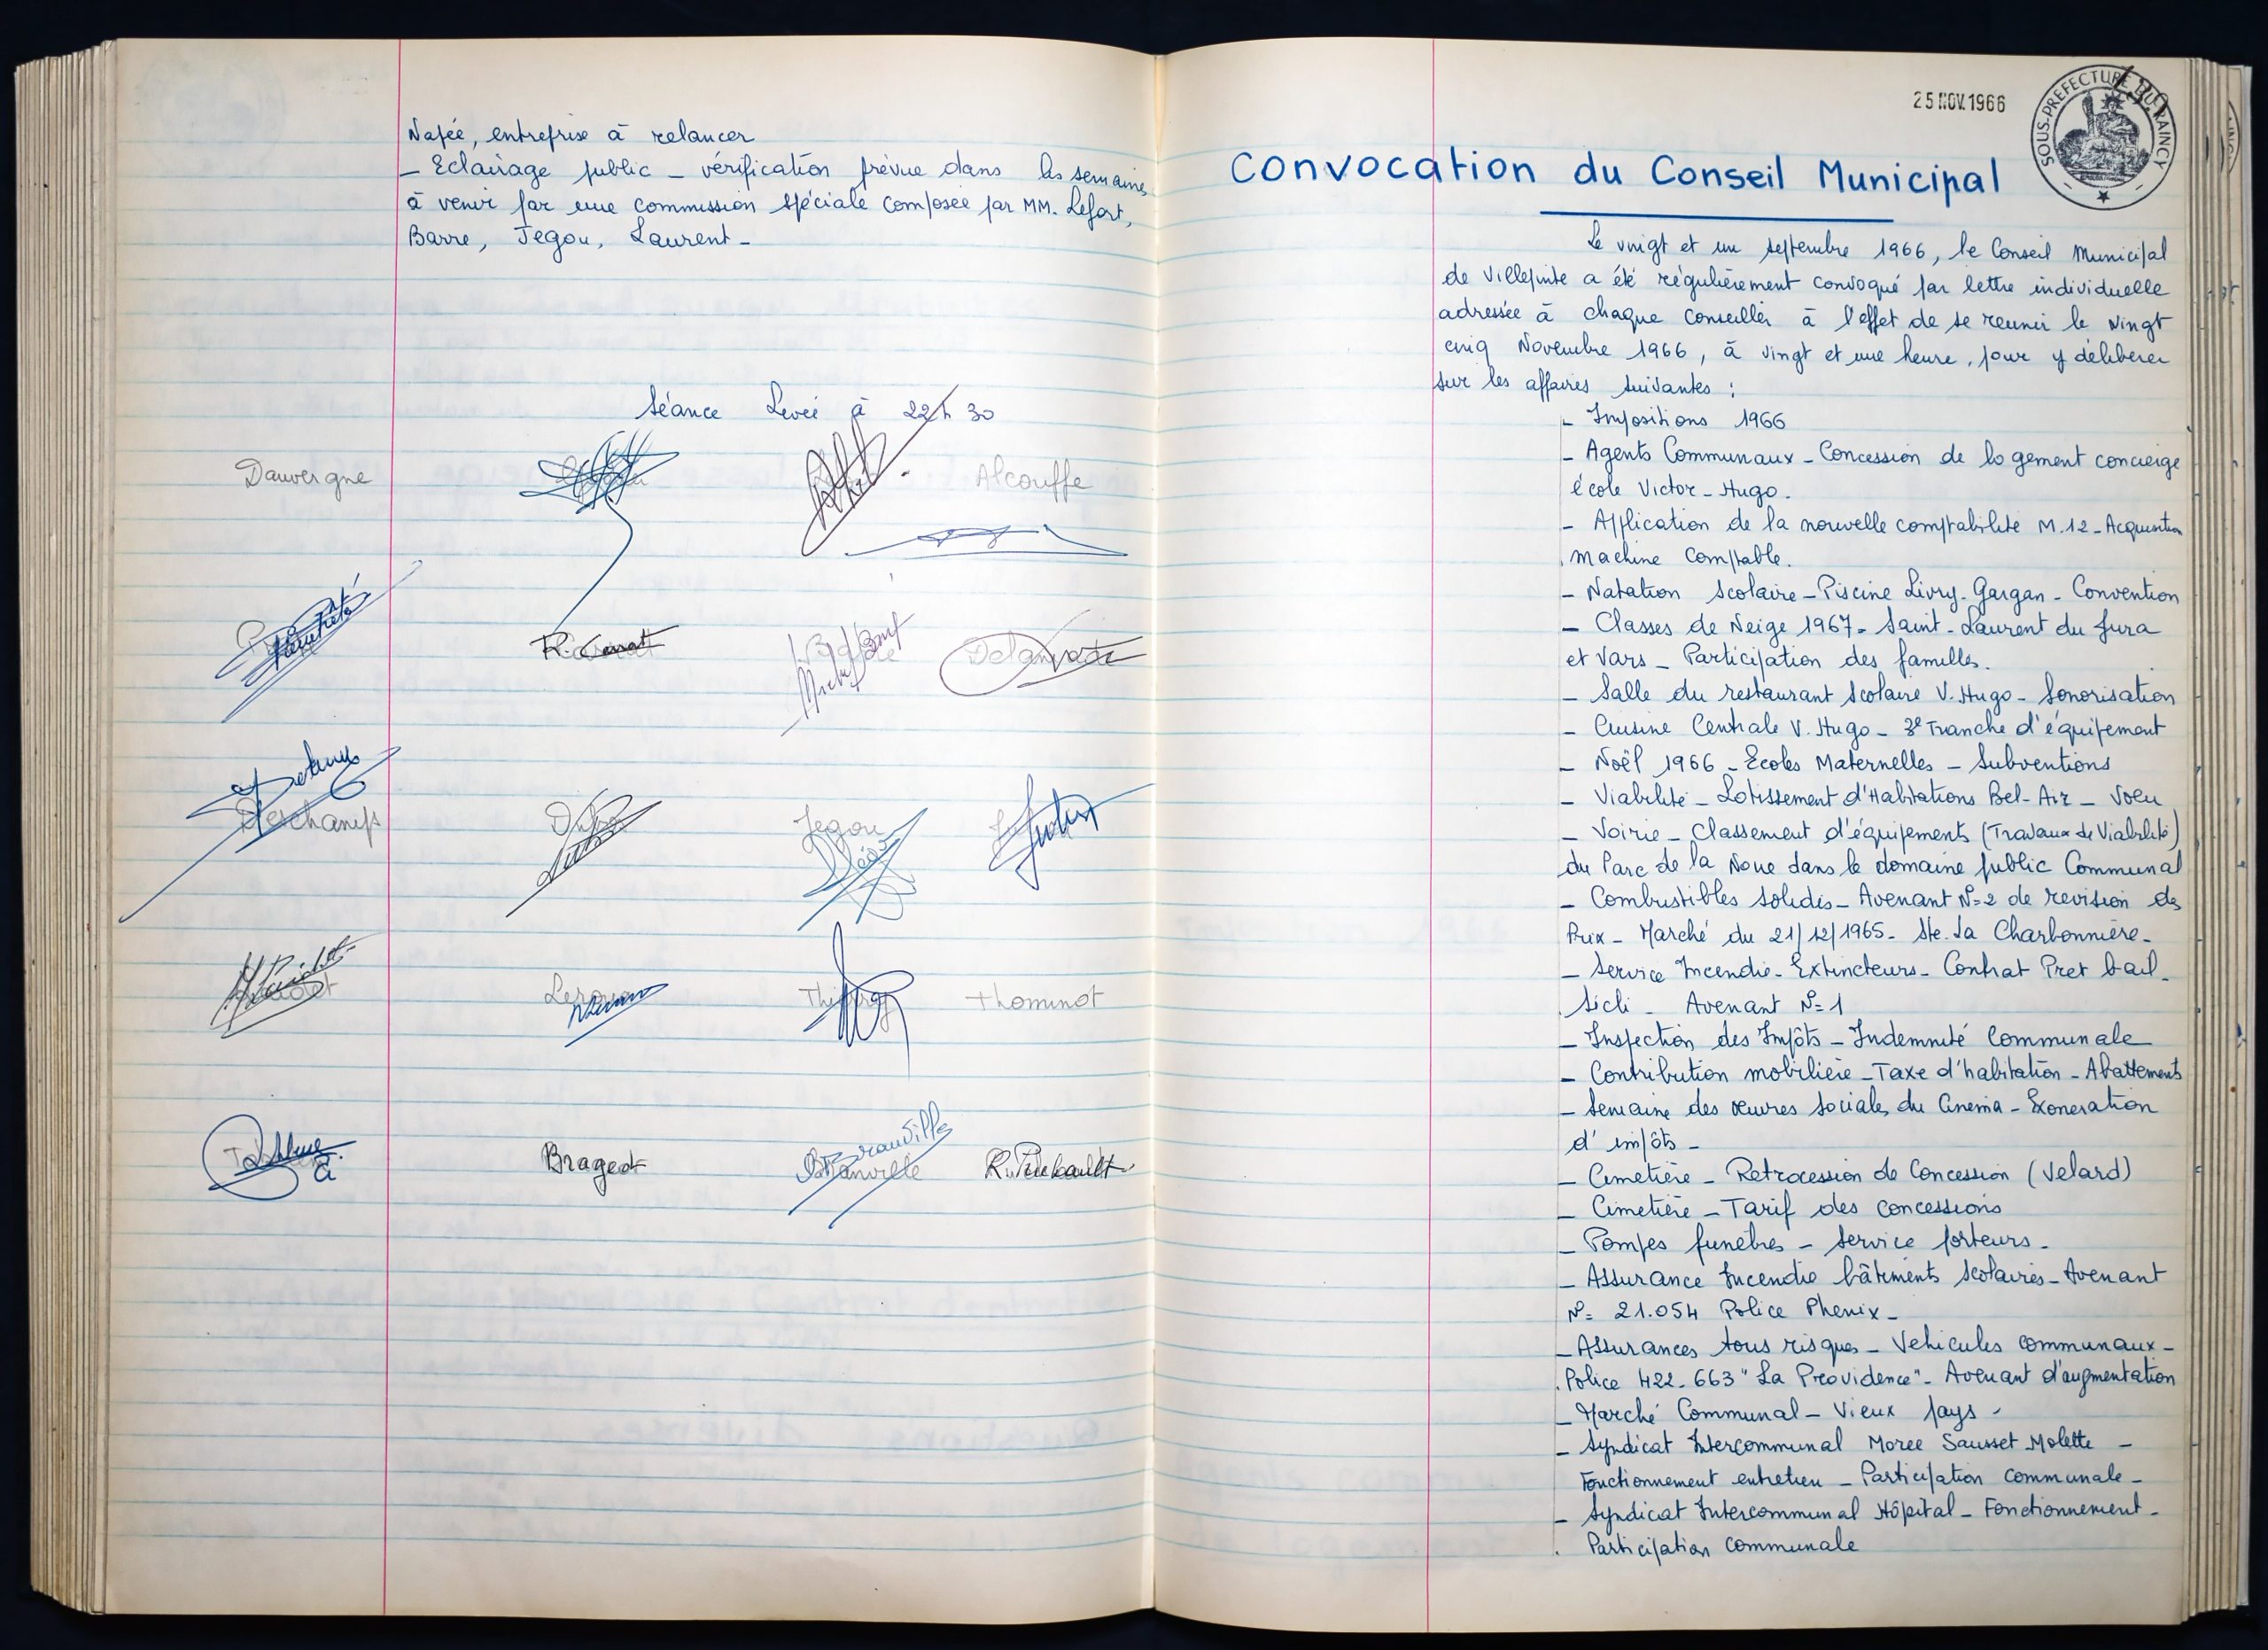 Napée, entreprise à relancer
– Eclairage public – vérification prévue dans les semaines
à venir par une commission spéciale composée par MM. Lefort,
Barre, Jegou, Laurent –
Séance Levée à 22h30
Dauvergne
Alcouffe
R.
Delanvade
Deschamps
Jegou
Thierry
Thominot
Braged
Branville
R. Thiebault
25 NOV. 1966
SOUS-PREFECTURE DU RAINCY
Convocation du Conseil Municipal
Le vingt et un septembre 1966, le Conseil Municipal
de Villepinte a été régulièrement convoqué par lettre individuelle
adressée à chaque conseiller à l'effet de se reunir le vingt
cinq Novembre 1966, à vingt et une heure, pour y délibérer
sur les affaires suivantes :
– Impositions 1966
– Agents Communaux – Concession de logement concierge
école Victor-Hugo.
– Application de la nouvelle comptabilité M.12 – Acquisition
machine comptable.
– Natation scolaire – Piscine Livry-Gargan – Convention
– Classes de Neige 1967 – Saint-Laurent du Jura
et Vars – Participation des familles.
– Salle du restaurant scolaire V. Hugo – Sonorisation
– Cuisine Centrale V. Hugo – 3e Tranche d'équipement
– Noël 1966 – Ecoles Maternelles – Subventions
– Viabilité – Lotissement d'Habitations Bel-Air – Voeu
– Voirie – Classement d'équipements (Travaux de Viabilité)
du Parc de la Noue dans le domaine public Communal
– Combustibles solides – Avenant N° 2 de revision des
Prix – Marché du 21/12/1965 – Ste. La Charbonnière –
– Service Incendie – Extincteurs – Contrat Pret bail –
Sicli – Avenant N° 1
– Inspection des Impôts – Indemnité Communale
– Contribution mobilière – Taxe d'habitation – Abattements
– Semaine des œuvres sociales du Cinema – Exoneration
d'impôts –
– Cimetière – Retrocession de Concession (Velard)
– Cimetière – Tarif des concessions
– Pompes funèbres – Service porteurs –
– Assurance Incendie bâtiments scolaires – Avenant
N° 21.054 Police Phenix –
– Assurances tous risques – Vehicules communaux –
Police 422-663 "La Providence" – Avenant d'augmentation
– Marché Communal – Vieux pays –
– Syndicat Intercommunal Moree Sausset Molette –
Fonctionnement entretien – Participation communale –
– Syndicat Intercommunal Hôpital – Fonctionnement –
Participation communale